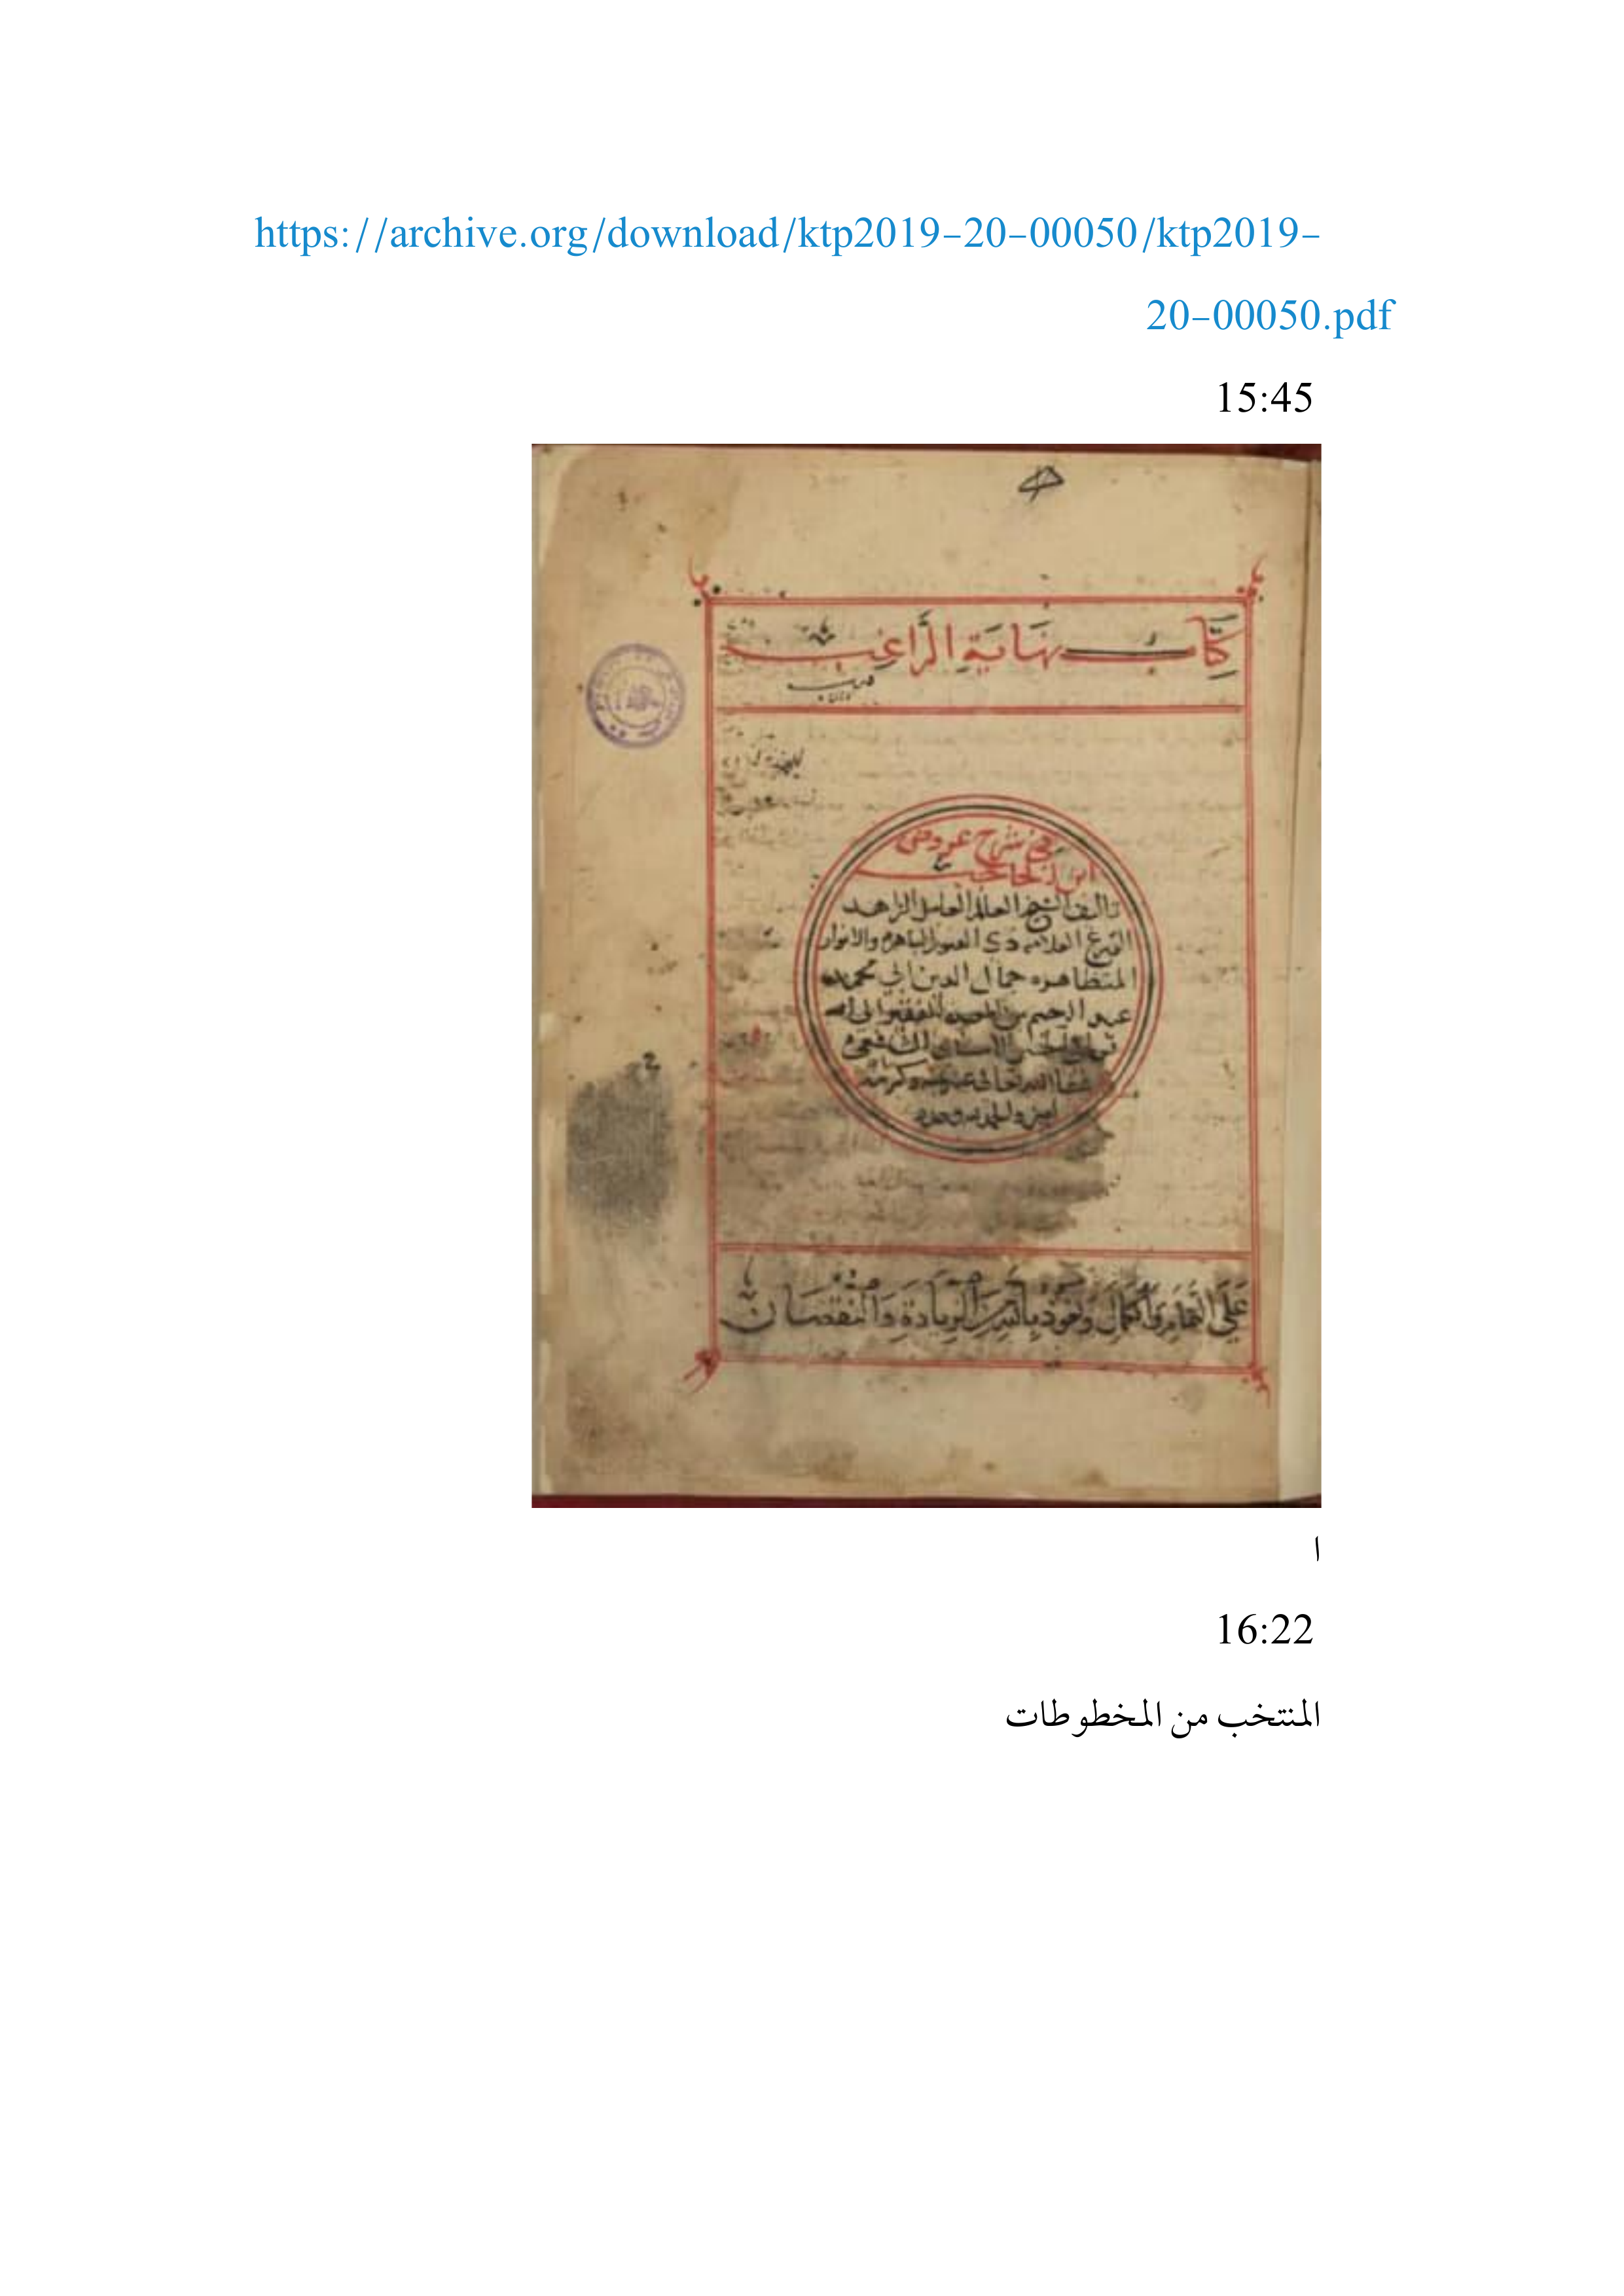 https://archive.org/download/ktp2019-20-00050/ktp2019-
20-00050.pdf
15:45
كتاب نهاية الراغب
في شرح عروض
ابن الحاجب
تاليف الشيخ العالم العامل الزاهد
الورع العلامه ذي العلوم الباهره والانوار
المتظاهره جمال الدين ابي محمد
عبد الرحيم بن
الشافعي
الله تعالى وكرمه
امين والحمد لله وحده
عَلَى التمام والكمال ونعوذ بالله من الزيادة والنقصان
ا
16:22
المنتخب من المخطوطات